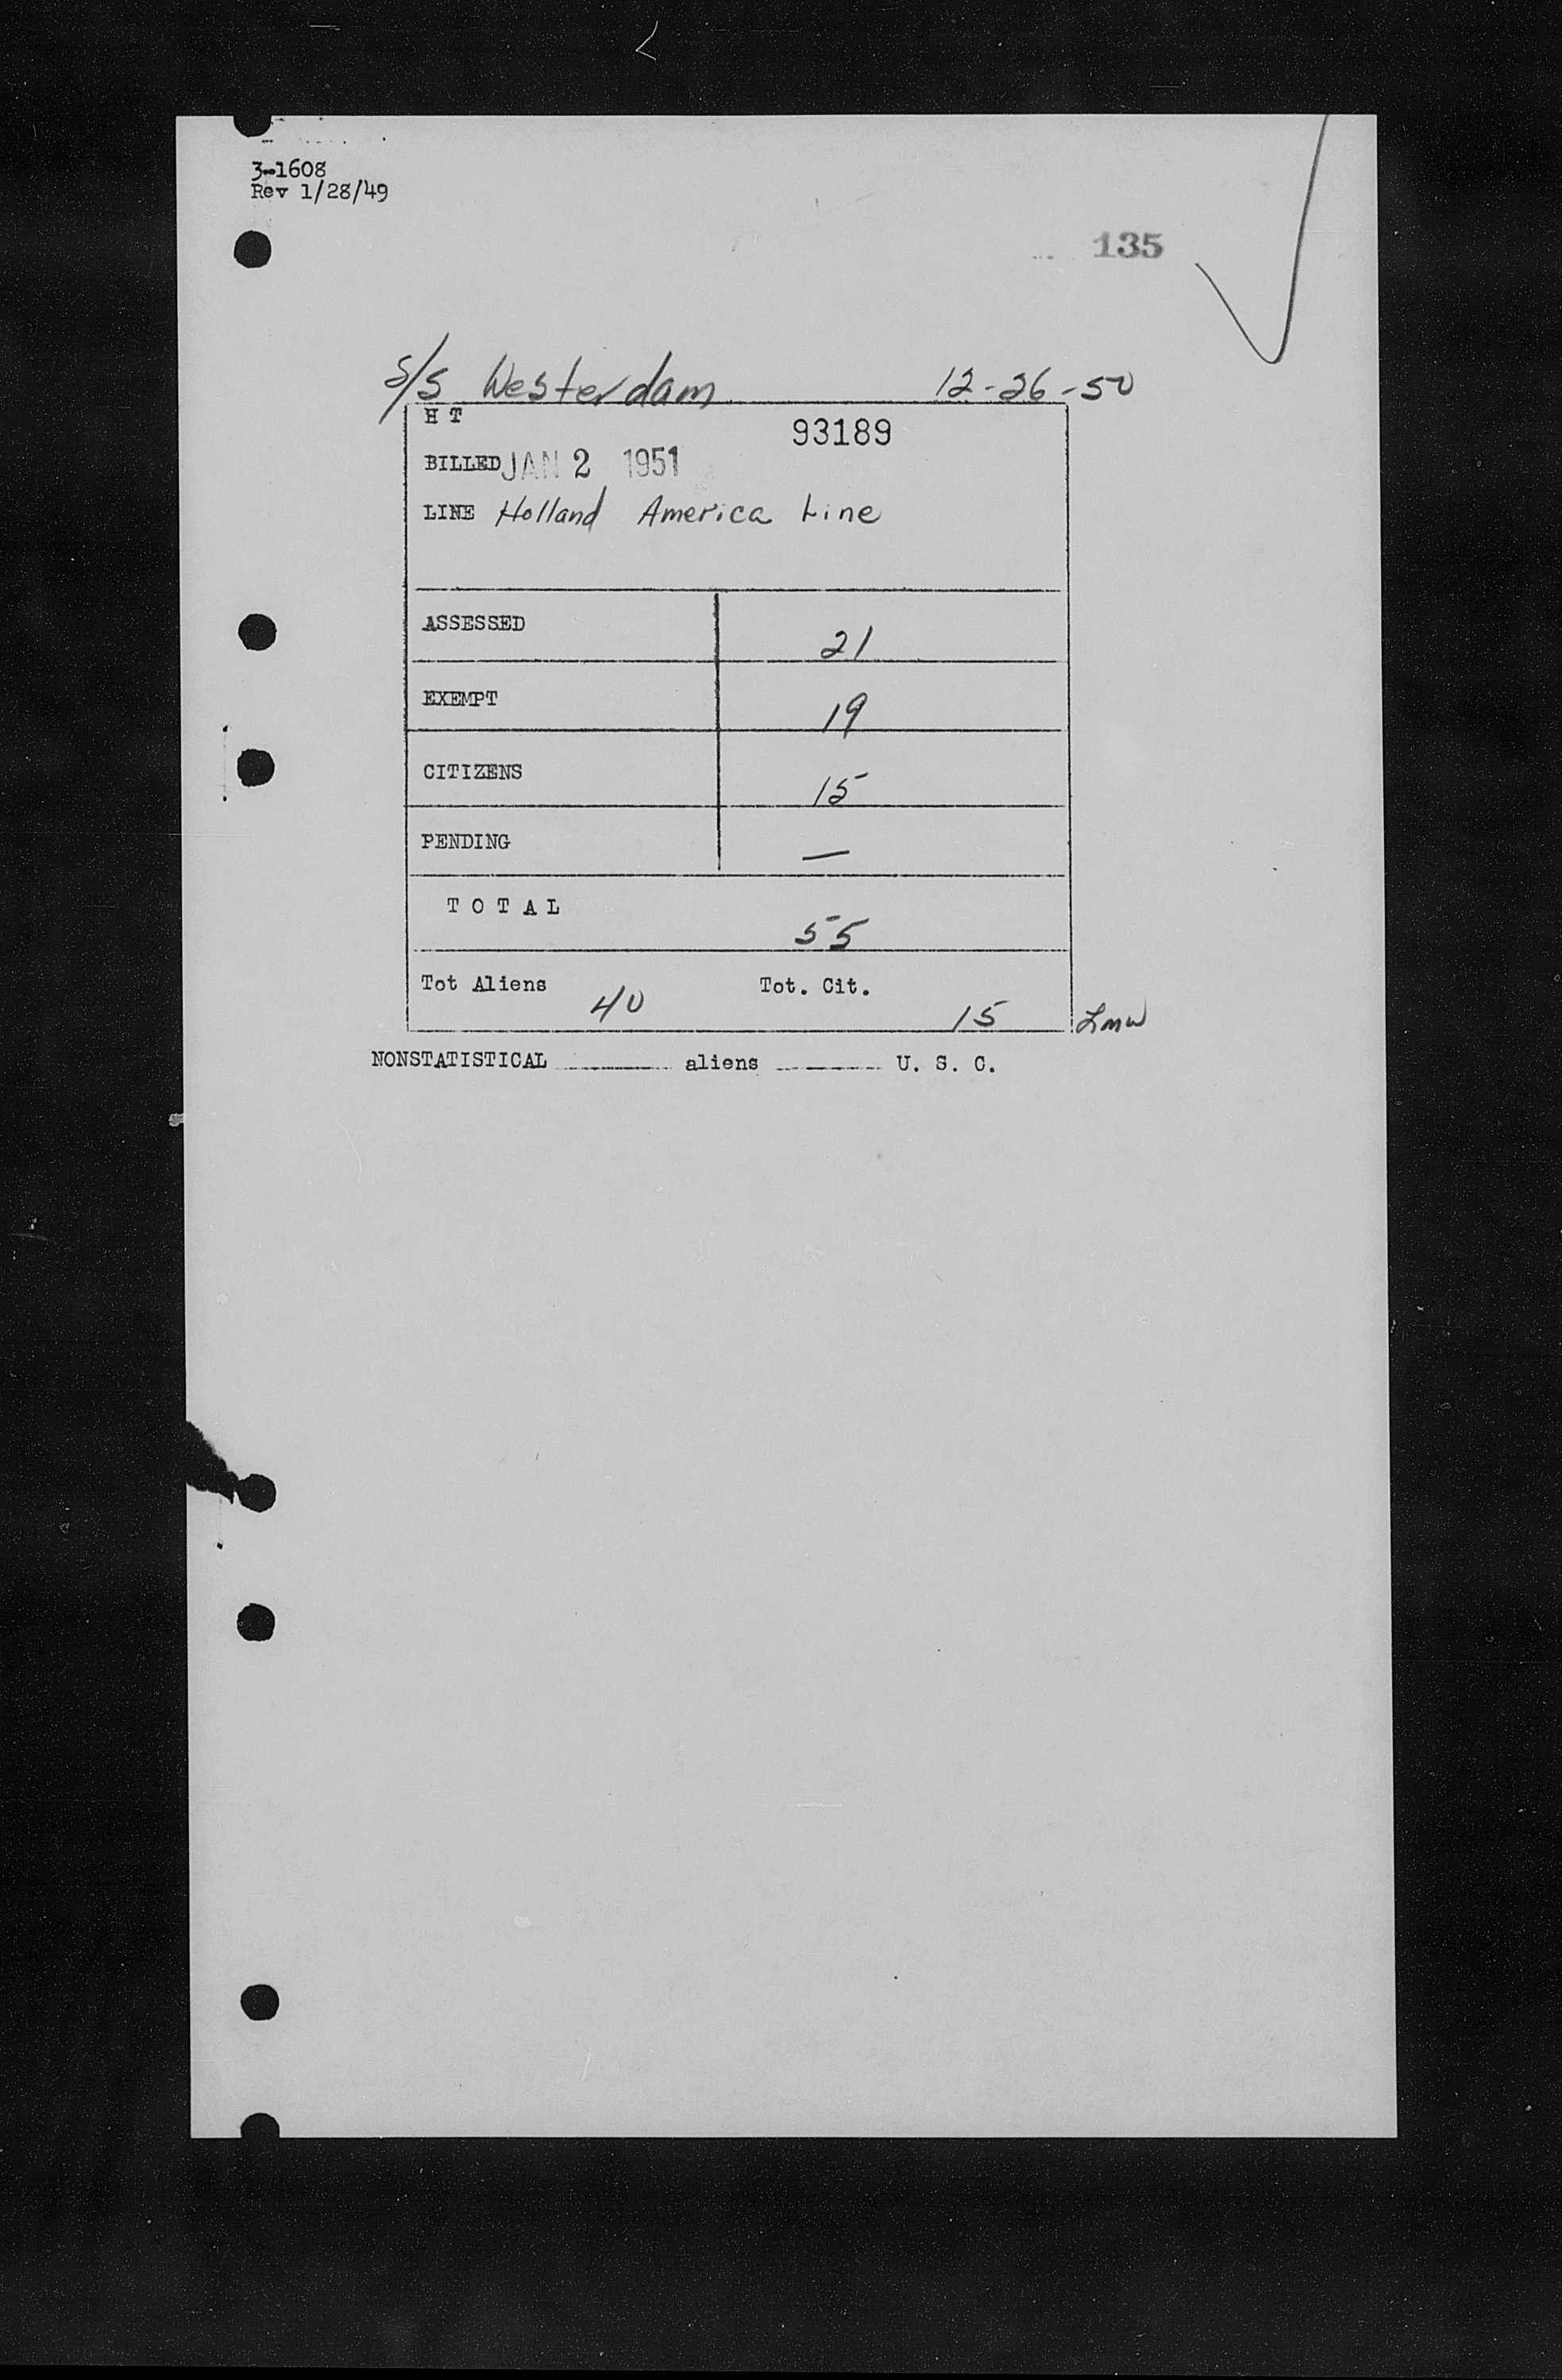 3-1608
Rev 1/28/49
135
S/S Westerdam 12-26-50
H T 93189
BILLED JAN 2 1951
LINE Holland America Line
ASSESSED 21
EXEMPT 19
CITIZENS 15
PENDING —
TOTAL 55
Tot Aliens 40 Tot. Cit. 15 Lmw
NONSTATISTICAL ______ aliens ______ U. S. C.